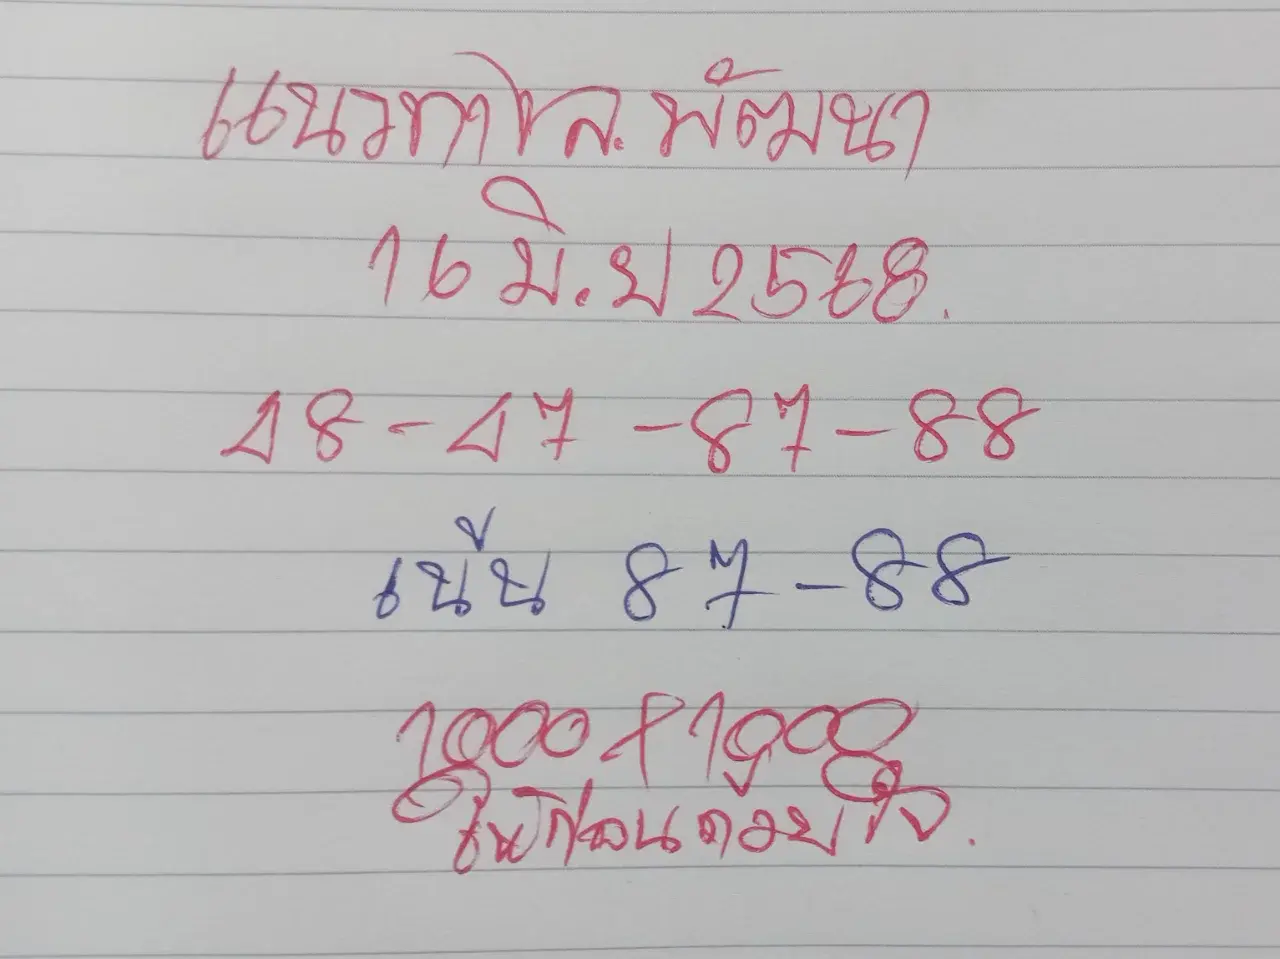 แนวทาง ล.พัฒนา
16 มิ.ย 2568.
48-47-87-88
เน้น 87-88
1000+1000
ให้ก่อนดวย ใจ.